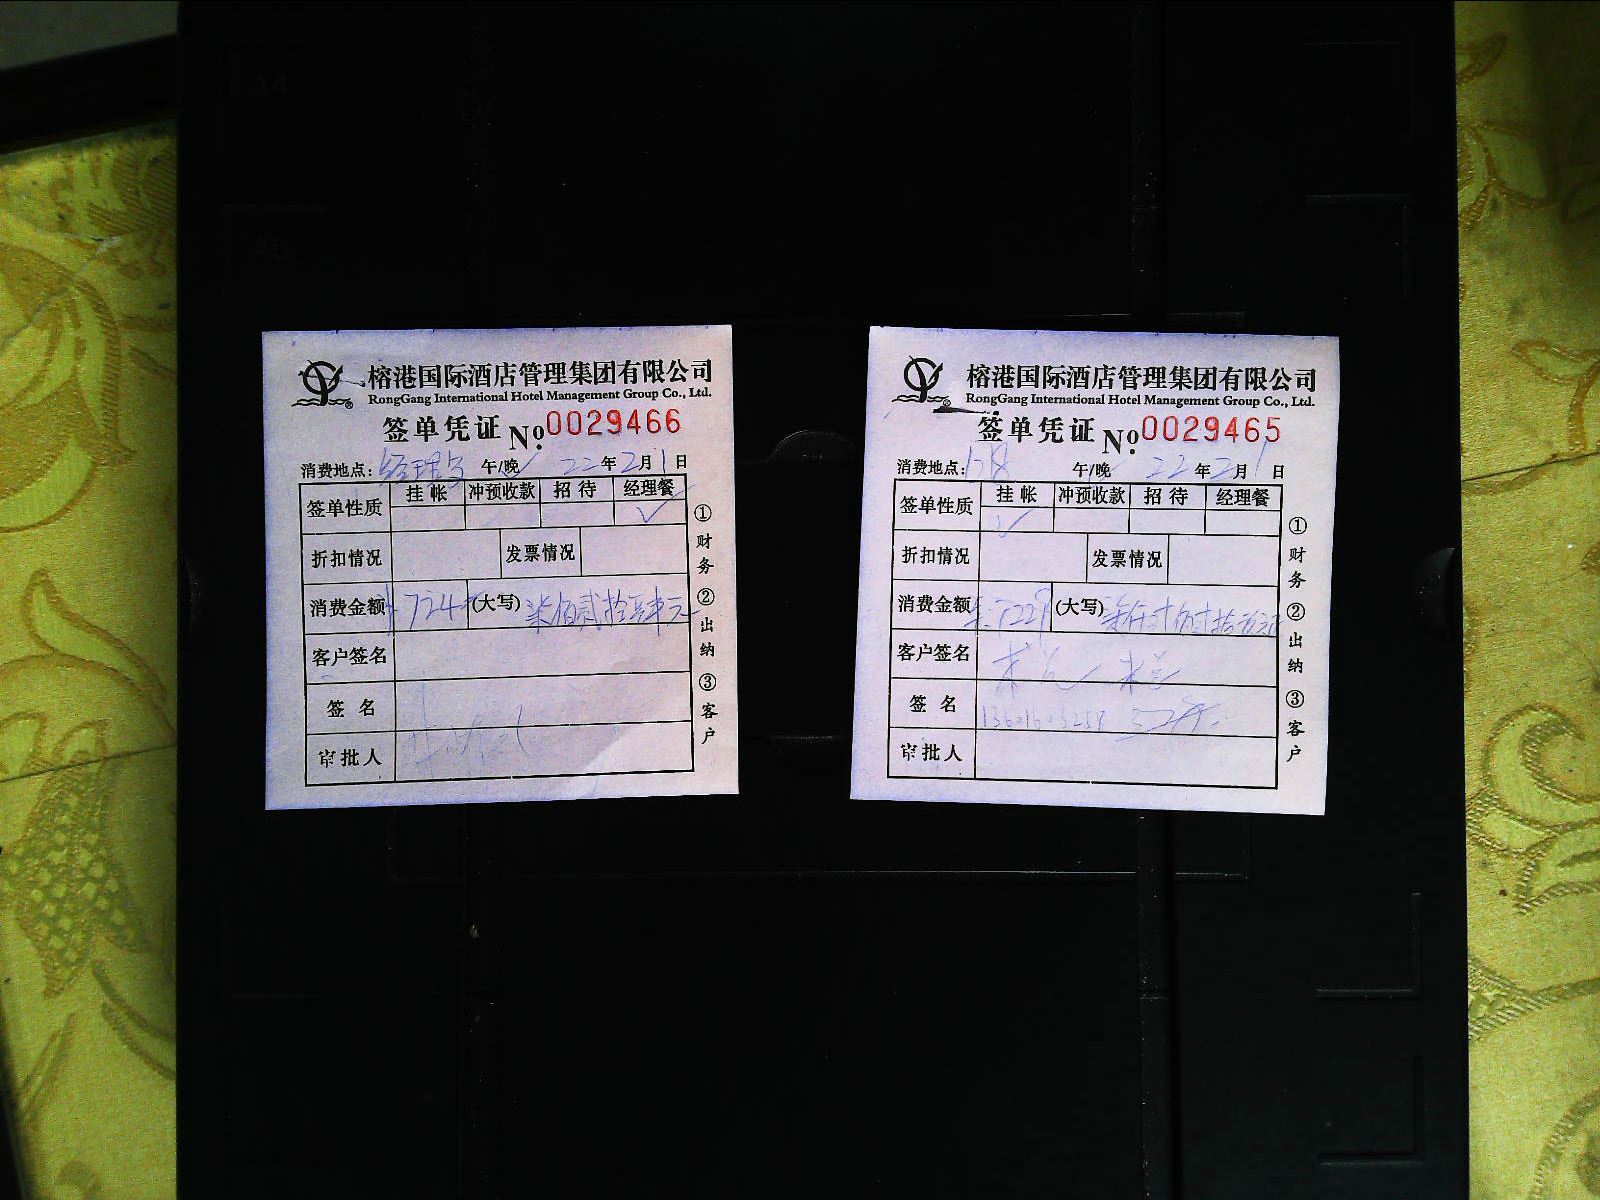 榕港国际酒店管理集团有限公司
RongGang International Hotel Management Group Co., Ltd.
签单凭证 No. 0029466
消费地点: 经理 午/晚 22年2月1日
签单性质 挂帐 冲预收款 招待 经理餐
✓
折扣情况 发票情况
消费金额 724 (大写) 柒佰贰拾肆元
客户签名
签名
审批人
①财务 ②出纳 ③客户
榕港国际酒店管理集团有限公司
RongGang International Hotel Management Group Co., Ltd.
签单凭证 No. 0029465
消费地点: 午/晚 22年2月1日
签单性质 挂帐 冲预收款 招待 经理餐
✓
折扣情况 发票情况
消费金额 (大写)
客户签名
签名 13601603258
审批人
①财务 ②出纳 ③客户